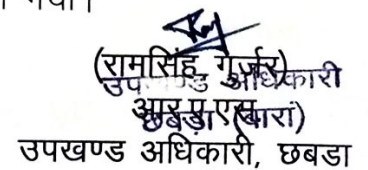 गया।
(रामसिंह गुर्जर)
उपखण्ड अधिकारी
आर.ए.एस.
छबडा (बारां)
उपखण्ड अधिकारी, छबडा